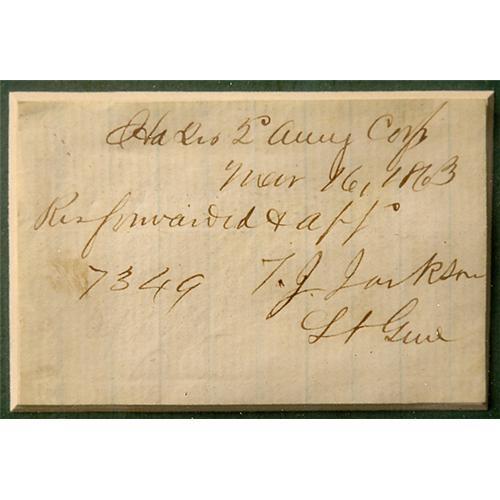 Hd Qrs 2d Army Corps
Mar 16, 1863
Res forwarded & app
7349 T. J. Jackson
Lt Genl